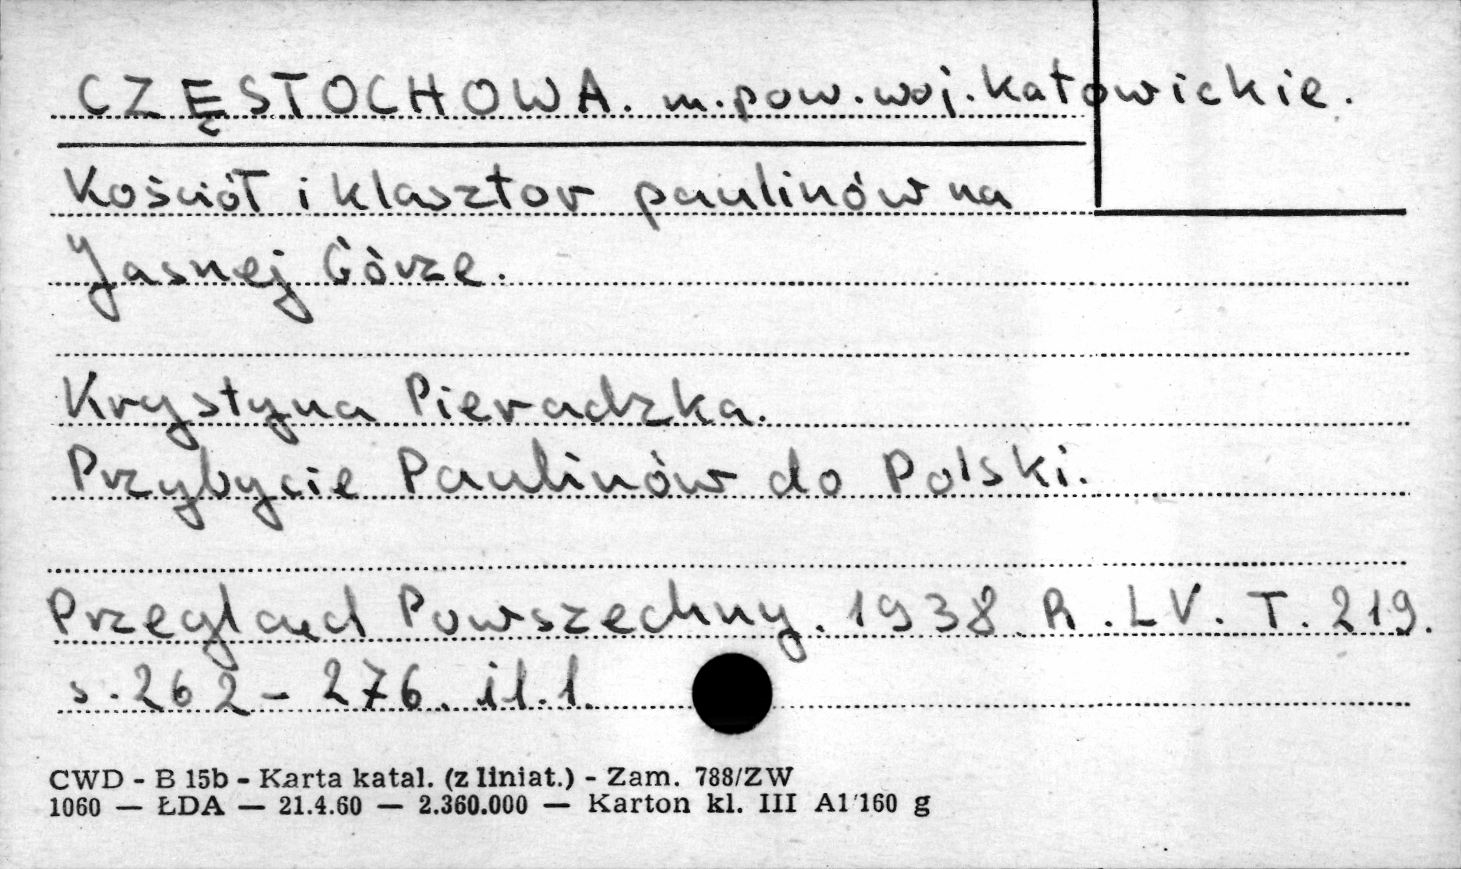 CZĘSTOCHOWA. m. pow. woj. katowickie.
Kościół i klasztor paulinów na
Jasnej Górze.
Krystyna Pieradzka.
Przybycie Paulinów do Polski.
Przegląd Powszechny. 1938. R. LV. T. 219.
s. 262 - 276. il. 1.
CWD - B 15b - Karta katal. (z liniat.) - Zam. 788/ZW
1060 — ŁDA — 21.4.60 — 2.360.000 — Karton kl. III A1 160 g